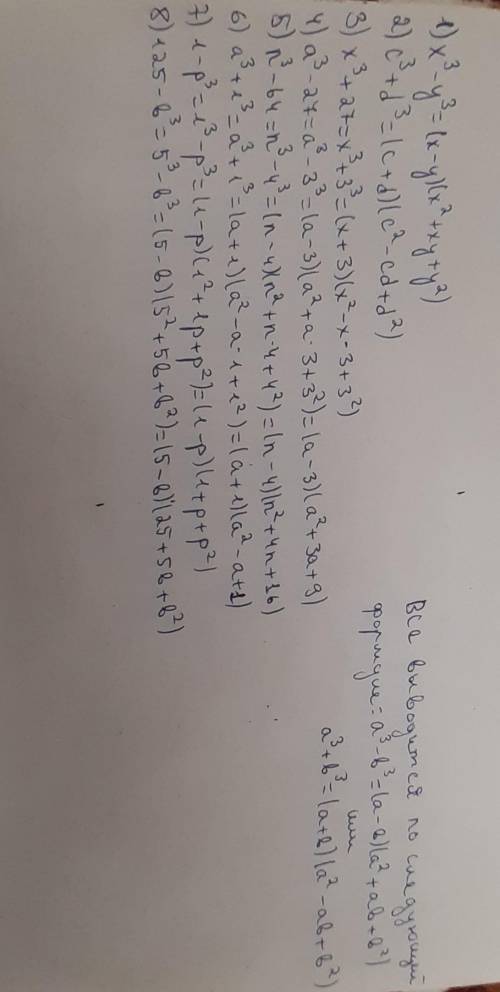 1) x³-y³=(x-y)(x²+xy+y²)
2) c³+d³=(c+d)(c²-cd+d²)
3) x³+27=x³+3³=(x+3)(x²-x·3+3²)
4) a³-27=a³-3³=(a-3)(a²+a·3+3²)=(a-3)(a²+3a+9)
5) n³-64=n³-4³=(n-4)(n²+n·4+4²)=(n-4)(n²+4n+16)
6) a³+1³=a³+1³=(a+1)(a²-a·1+1²)=(a+1)(a²-a+1)
7) 1-p³=1³-p³=(1-p)(1²+1p+p²)=(1-p)(1+p+p²)
8) 125-b³=5³-b³=(5-b)(5²+5b+b²)=(5-b)(25+5b+b²)
Все выводится по следующий
формуле=a³-b³=(a-b)(a²+ab+b²)
или
a³+b³=(a+b)(a²-ab+b²)